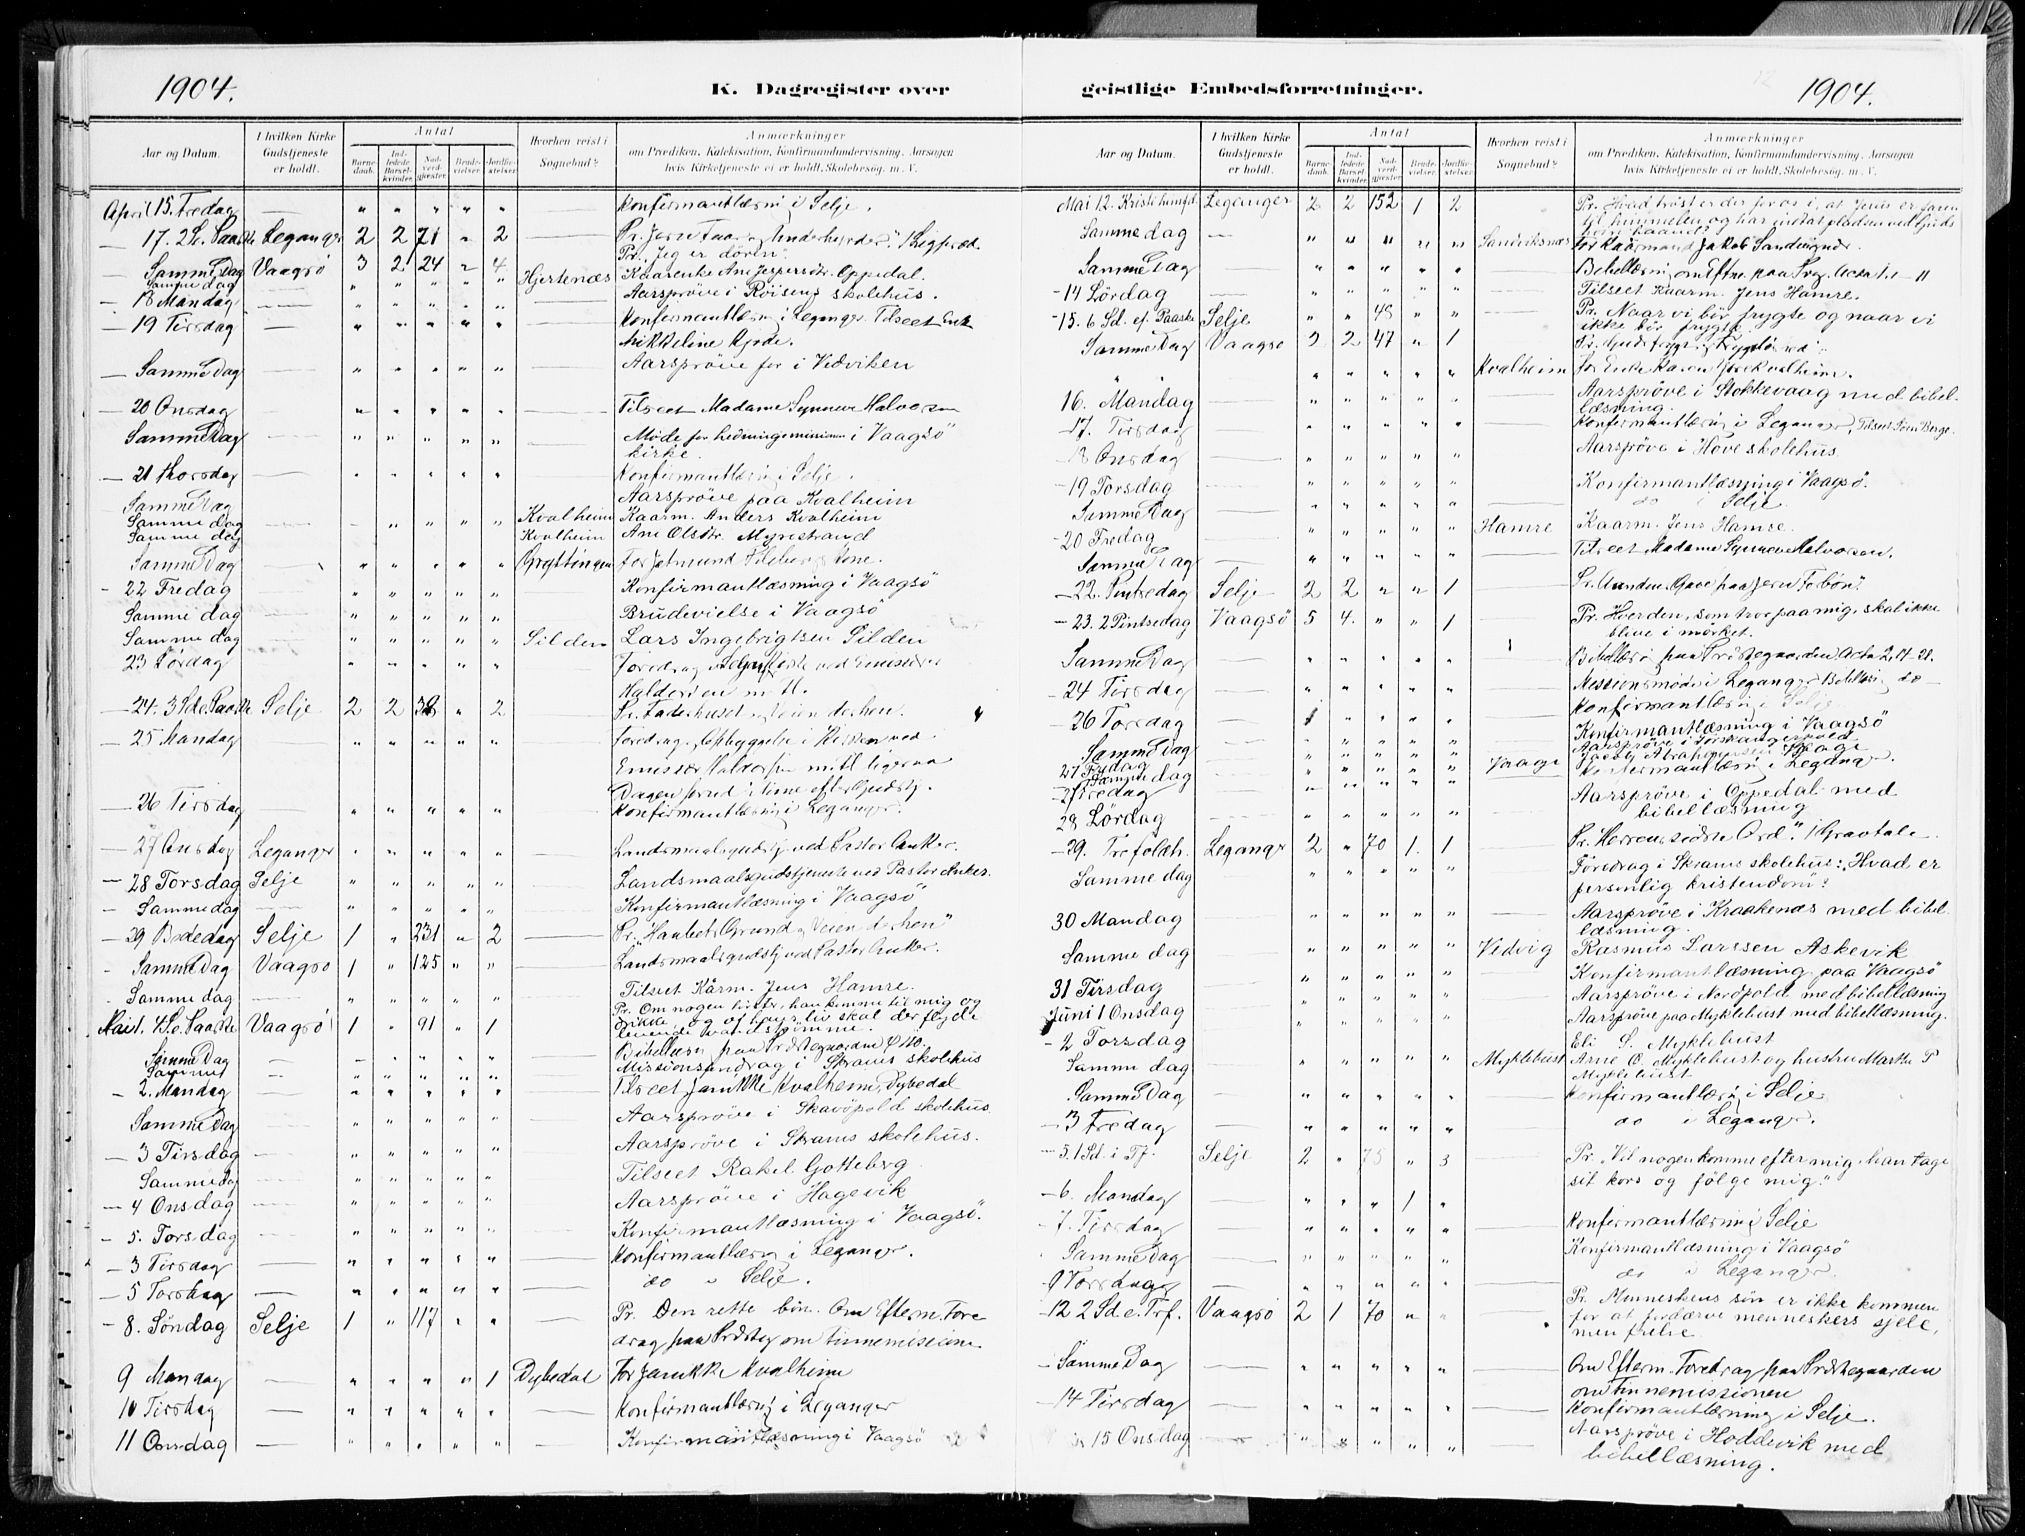 1904.
K. Dagregister over
Aar og Datum.
I hvilken Kirke Gudstjeneste er holdt.
Antal
Barnedaab.
Indledede Barselkvinder.
Nadverdgjester
Brudevielser
Jordfæstelser
Hvorhen reist i Sognebud?
Anmærkninger
om Prædiken, Katekisation, Konfirmandundervisning, Aarsagen
hvis Kirketjeneste ei er holdt, Skolebesøg. m. V.
April 15. Fredag — " " " " " Konfirmantlæsn i Selje.
— 17. 2 S. Paaske Leganger 2 2 71 " 2
Samme Dag Vaagsö 3 2 24 " 4 Pr. Jeg er dören
Samme dag " " " " " Hjertenæs Kaarenke Ane Jespersdr. Oppedal.
— 18 Mandag — " " " " " Aarspröve i Röisens skolehus.
— 19 Tirsdag — " " " " " Konfirmantlæsn i Leganger. Tilseet Enk
Mikkeline Gjerde.
— Samme Dag " " " " " — Aarspröve for i Vedviken
— 20 Onsdag — " " " " " — Tilseet Madame Synneve Halvorsen
Samme Dag " " " " " — Møde for hedningemissionen i Vaagsö
kirke.
— 21 Torsdag — " " " " " — Konfirmantlæsn i Selje.
Samme Dag Aarspröve paa Kvalheim
Samme dag — " " " " Kvalheim Kaarm. Anders Kvalheim
Samme dag Kvalheim Ane Olsdr. Myrestrand
Samme Dag " " " " " Gryttingen
- 22 Fredag " " " " " — Konfirmantlæsning i Vaagsö
Samme dag " " " " " — Brudevielse i Vaagsö
Samme dag " " " " " Silden Lars Ingebrigtsen Silden
23 Lördag " " " " " — Foredrag i Selje Kirke ved Emissær
Haldorsen m. tl.
— 24. 3 S. Paaske Selje 2 2 38 " 2
— 25 Mandag " " " " " — foredrag, Opbyggelse i Kirken ved
Emissær Haldorsen
— 26 Tirsdag — " " " " " — Konfirmantlæsn i Leganger.
— 27 Onsdag Leganger " " " " " — Landsmaalsgudstj. ved Pastor Anker.
— 28 Torsdag Selje " " " " " — Landsmaalsgudstjeneste ved Pastor Anker.
- Samme dag " " " " " Konfirmantlæsning i Vaagsö
- 29 Bededag Selje 1 " 231 " 2 —
- Samme Dag Vaagsö 1 " 125 " " Landsmaalsgudstj. ved Pastor Anker.
Samme dag " " " " " — Tilseet Kårm. Jens Hamre.
Mai 1. 4 S. Paaske Vaagsö 1 " 91 " 1 Pr. Om nogen tørster, han komme til mig og
drikke, og af hans liv skal der flyde
levende vandstrømme.
Samme Dag — " " " " " — Bibellæsn paa Præstegaarden
Samme — " " " " " — Missionsforedrag i Skrams skolehus
- 2. Mandag " " " " " — Tilseet Janikke Kvalheim, Dybedal
Samme Dag " " " " — Aarspröve i Skavöpold skolehus.
- 3 Tirsdag " " " " " — Aarspröve i Skrams skolehus.
Samme dag " " " " " — Tilseet Rakel Gotteberg
— 4 Onsdag " " " " " — Aarspröve i Hagevik
- 5. Torsdag — " " " " " — Konfirmantlæsning i Vaagsö.
- 3 Tirsdag — " " " " " — Konfirmantlæsn i Leganger.
- 5 Torsdag — " " " " " — do " Selje.
- 8. Søndag Selje 1 " 117 " " — Pr. Den rette bön. Om Efterm. Fore
drag paa Præsteg om Finnemissionen
9 Mandag — " " " " 1 Dybedal For Janikke Kvalheim
10 Tirsdag — " " " " " — Konfirmantlæsn i Leganger
11 Onsdag — " " " " " — Konfirmantlæsning i Vaagsö
geistlige Embedsforretninger.
1904.
Aar og Datum.
I hvilken Kirke Gudstjeneste er holdt.
Antal
Barnedaab.
Indledede Barselkvinder.
Nadverdgjester
Brudevielser
Jordfæstelser
Hvorhen reist i Sognebud?
Anmærkninger
om Prædiken, Katekisation, Konfirmandundervisning, Aarsagen
hvis Kirketjeneste ei er holdt, Skolebesøg. m. V.
Mai 12. Kristi himfd. Leganger 2 2 152 1 2 Pr. Hvad tröst er der for os i, at Jesus er faren
til himmelen og har indtat pladsen ved Guds
Samme dag — " " " " " Sandviksnæs for Kaarmand Jakob
Samme Dag — " " " " "
- 14 Lördag — " " " " " — Tilseet Kaarm. Jens Hamre.
- 15. 6 Sd. ef. Paaske Selje " " 48 " " — Pr. Naar vi bör frygte og naar vi
ikke bör frygte.
Samme Dag Vaagsö 3 2 47 " 1
" " " " " " Kvalheim
16. Mandag — " " " " " Aarspröve i Stokkevaag med bibel-
læsning.
- 17. Tirsdag — " " " " " Konfirmantlæsn i Leganger, Tilseet Sörn Berge.
- 18 Onsdag — " " " " " — Aarspröve i Hove skolehus.
- 19 Torsdag — " " " " " — Konfirmantlæsning i Vaagsö.
Samme Dag — " " " " " — do i Selje
20 Fredag " " " " " Hamre Kaarm. Jens Hamre.
Samme Dag — " " " " " — Tilseet Madame Synnev Halvorsen.
— 22. Pintsedag Selje 2 2 " " 1
— 23. 2 Pintsedag Vaagsö 5 4. " " 1 — Pr. Hverden, som tror paa mig, skal ikke
blive i mørket.
Samme Dag — " " " " " Bibellæsn paa Præstegaarden
24 Tirsdag — " " " " " — Missionsmöde i Leganger
- 26 Torsdag — " " " " — Konfirmantlæsn i Selje
Samme Dag " " " " " — Konfirmantlæsning i Vaagsö
27 Fredag " " " " " Vaage
Samme dag Konfirmantlæsn i Leganger.
Aarspröve i Oppedal med
28 Lördag — bibellæsning
— 29. Trefoldh. Leganger 2 " 70 1. 1
Samme dag " " " " " — Föredrag i Skrams skolehus: Hvad er
personlig kristendom?
30 Mandag " " " " " — Aarspröve i Kraakenæs med bibel-
læsning.
Samme dag " " " " " Vedvig Rasmus Larssen Askevik
31 Tirsdag " " " " " — Konfirmantlæsning paa Vaagsö
Aarspröve i Nordpold med bibellæsning
Juni 1 Onsdag " " " " " — Aarspröve paa Myklebust med bibellæsning.
— 2 Torsdag " " " " " — Eli S. Myklebust
Samme dag " " " " " Myklebust Arne O. Myklebust og hustru Marthe P
Myklebust
Samme Dag " " " " " — Konfirmantlæsn i Selje
— 3 Fredag " " " " " — do i Leganger.
— 5. 1 Sd. i Tf. Selje 2 " 75 " 3 — Pr. „Vil nogen komme efter mig, Han tage
sit kors og følge mig."
— 6. Mandag — " " " 1 " —
- 7. Tirsdag — " " " " " — Konfirmantlæsn i Selje
Samme Dag — " " " " " — Konfirmantlæsning i Vaagsö
9 Torsdag — " " " " " — do i Leganger
— 12 2 Sd e. Trf. Vaagsö 2 1 70 " " — Pr. Menneskens sön er ikke kommen
for at fordærve menneskers sjele,
men frelse
- Samme Dag — " " " " " — Om Efterm. Foredrag paa Præstegaarden
om Finnemissionen
- 14 Tirsdag — " " " " " — Konfirmantlæsning i Selje.
15 Onsdag — " " " " — Aarspröve i Hoddevik med
bibellæsning.